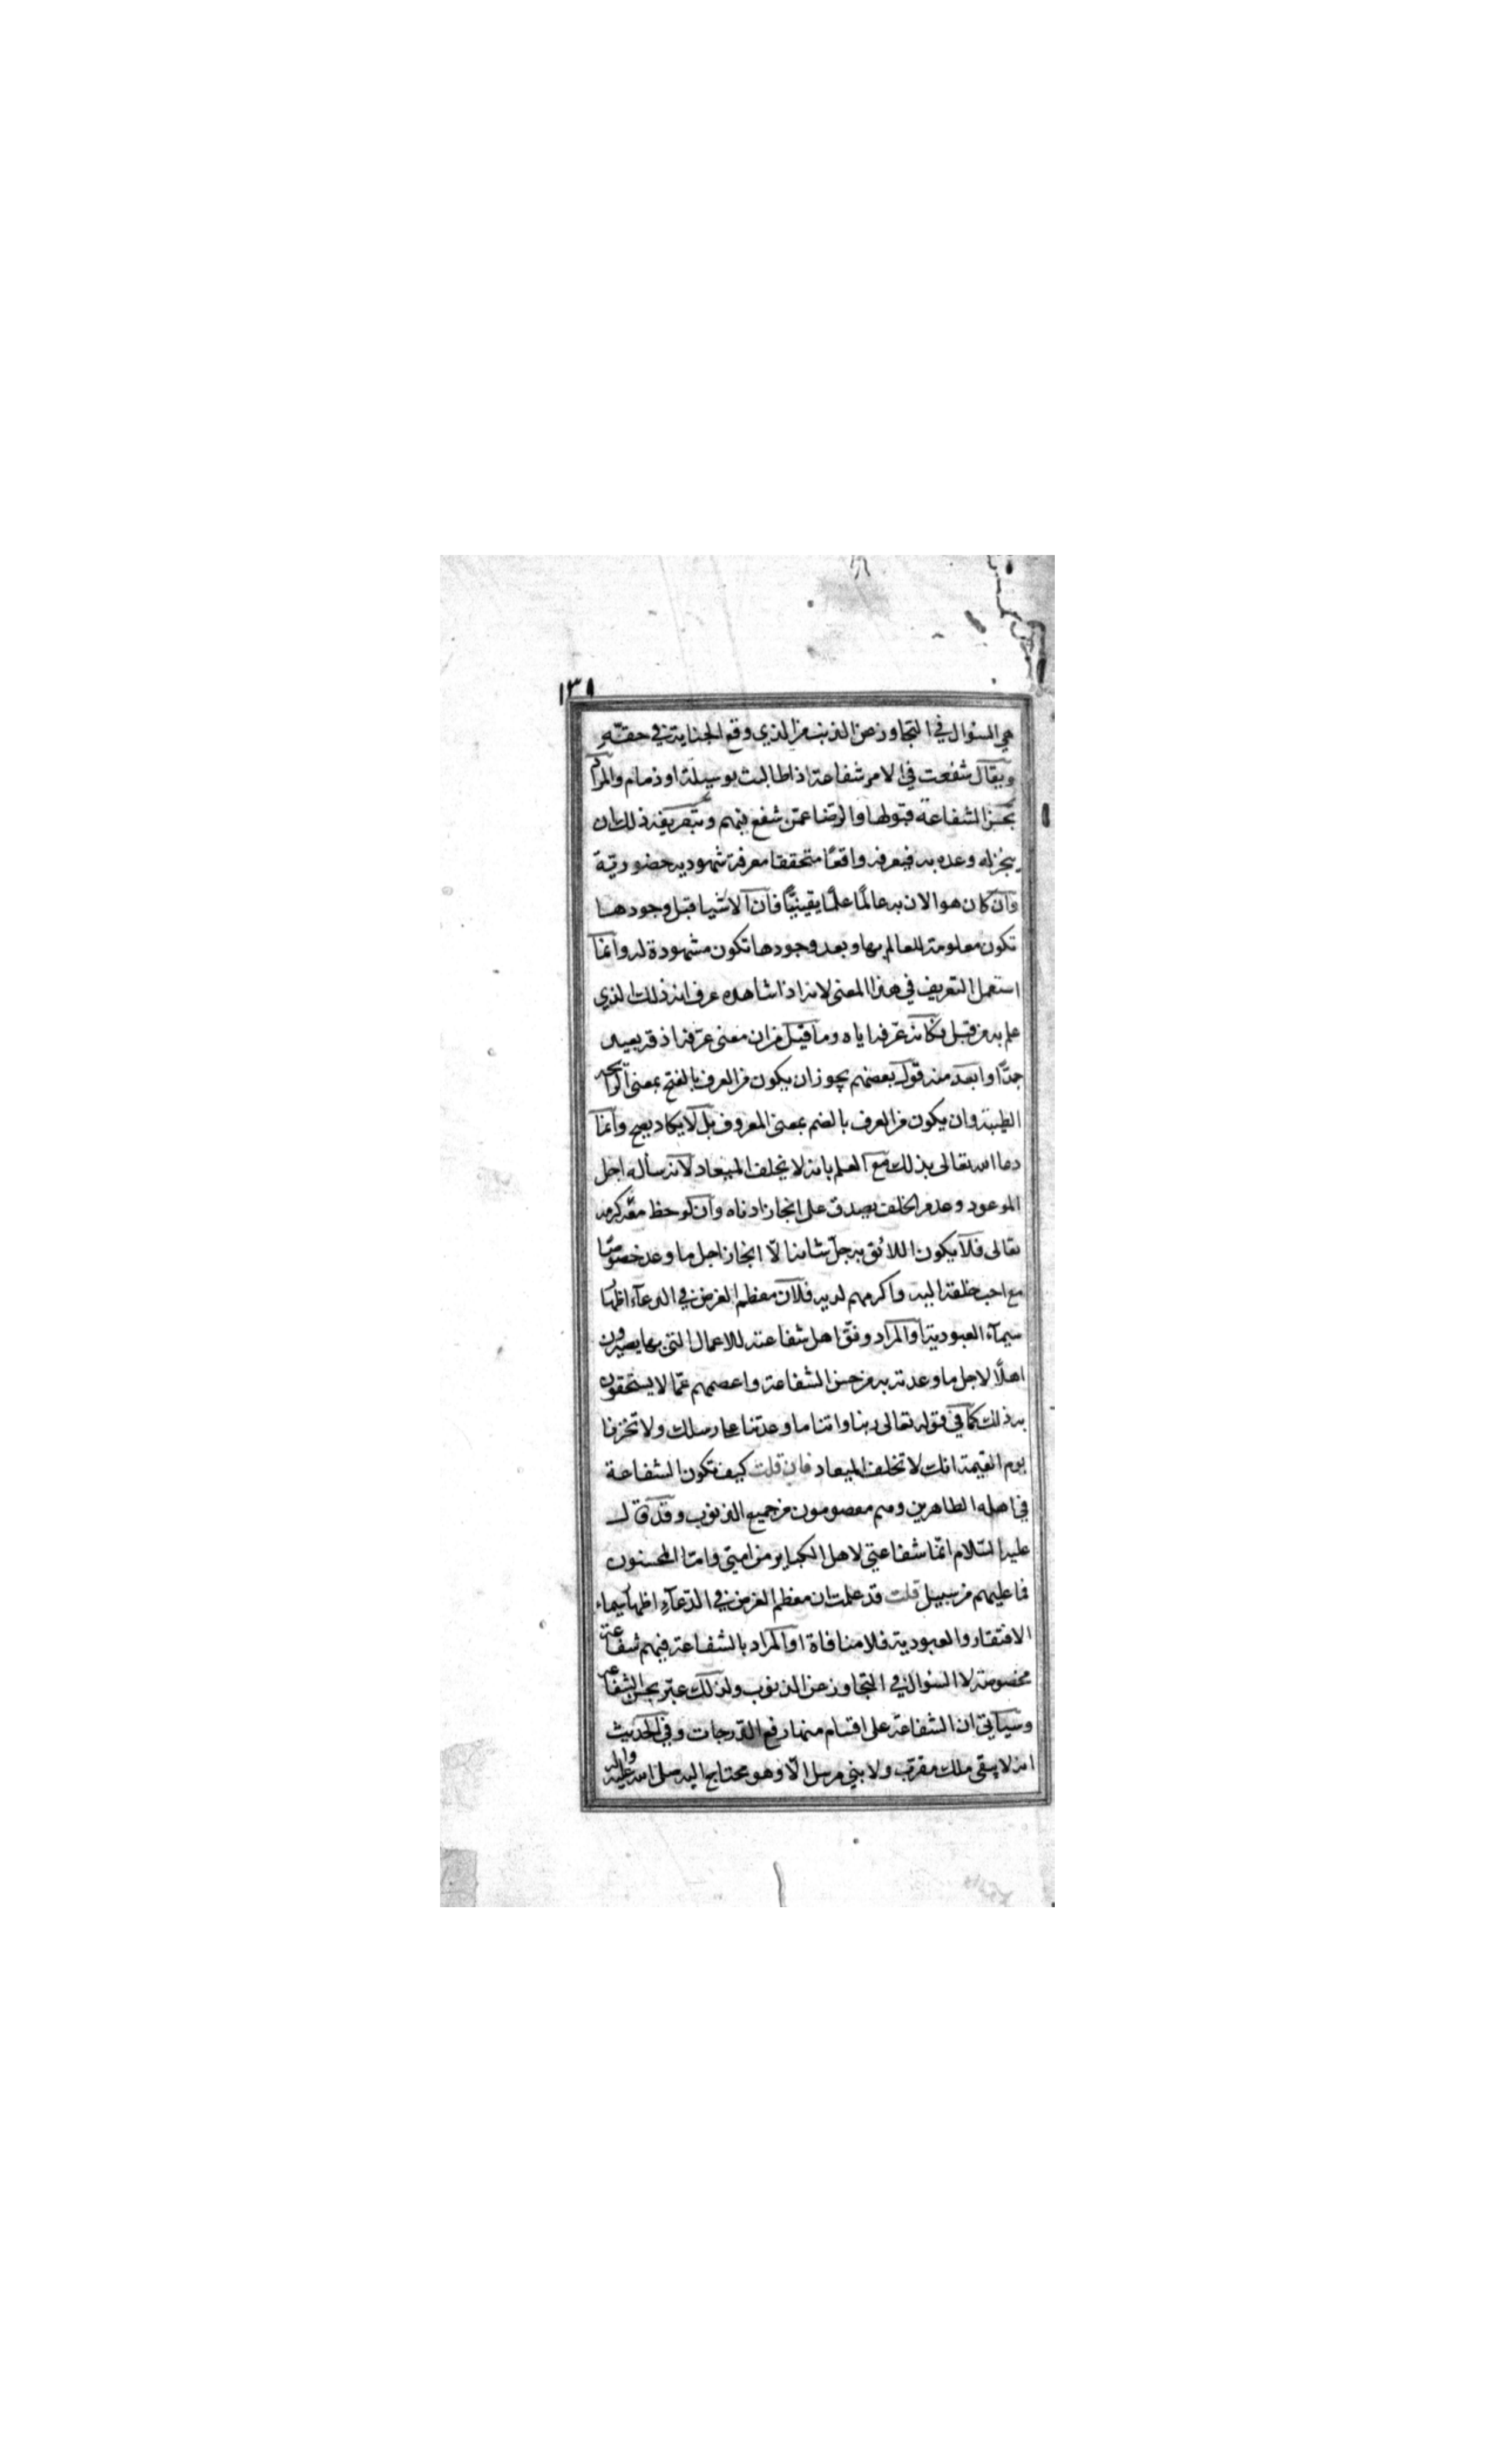 ١٣١
هي السؤال في التجاوز عن الذنب من الذي وقع الجناية في حقه
ويقال شفعت في الامر شفاعة اذا طالبت بوسيلة او ذمام والمراد
بحسن الشفاعة قبولها والرضا عمن شفع فيهم وتعريفه ذلك ان
ينجز له وعده به فيعرفه واقعًا متحققا معرفة شهودية حضورية
وان كان هو الان به عالمًا علمًا يقينيًّا فان الاشيا قبل وجودها
تكون معلومة للعالم بها وبعد وجودها تكون مشهودة له وانما
استعمل التعريف في هذا المعنى لانه اذا شاهده عرف انه ذلك الذي
علم به من قبل فكانه عرفه اياه وما قيل من ان معنى عرفه اذقه بعيد
جدًّا وابعد منه قول بعضهم يجوز ان يكون من العرف بالفتح بمعنى الرائحة
الطيبة وان يكون من العرف بالضم بمعنى المعروف بل لا يكاد يصح وانما
دعا الله تعالى بذلك مع العلم بانه لا يخلف الميعاد لانه سأله اجل
الموعود وعدم الخلف يصدق على انجاز ادناه وان لوحظ معه كرمه
تعالى فلا يكون اللائق به جل شانه الّا انجاز اجل ما وعد خصوصًا
مع احب خلقه اليه واكرمهم لديه فلان معظم الغرض في الدعآء اظهار
سيمآء العبودية او المراد وفّق اهل شفاعته للاعمال التي بها يصيرون
اهلًا لاجل ما وعدته به من حسن الشفاعة واعصمهم عمّا لا يستحقون
به ذلك كما في قوله تعالى ربنا واتنا ما وعدتنا على رسلك ولا تخزنا
يوم القيمة انك لا تخلف الميعاد فان قلت كيف تكون الشفاعة
في اهله الطاهرين وهم معصومون من جميع الذنوب وقد قال
عليه السّلام انّما شفاعتي لاهل الكباير من امتي وامّا المحسنون
فما عليهم من سبيل قلت قد علمت ان معظم الغرض في الدّعآء اظهار سيماء
الافتقار والعبودية فلا منافاة او المراد بالشفاعة فيهم شفاعة
مخصوصة لا السؤال في التجاوز عن الذنوب ولذلك عبّر بحسن الشفاعة
وسياتي ان الشفاعة على اقسام منها رفع الدّرجات وفي الحديث
انه لا يبقى ملك مقرب ولا نبي مرسل الّا وهو محتاج اليه صلى الله عليه واله